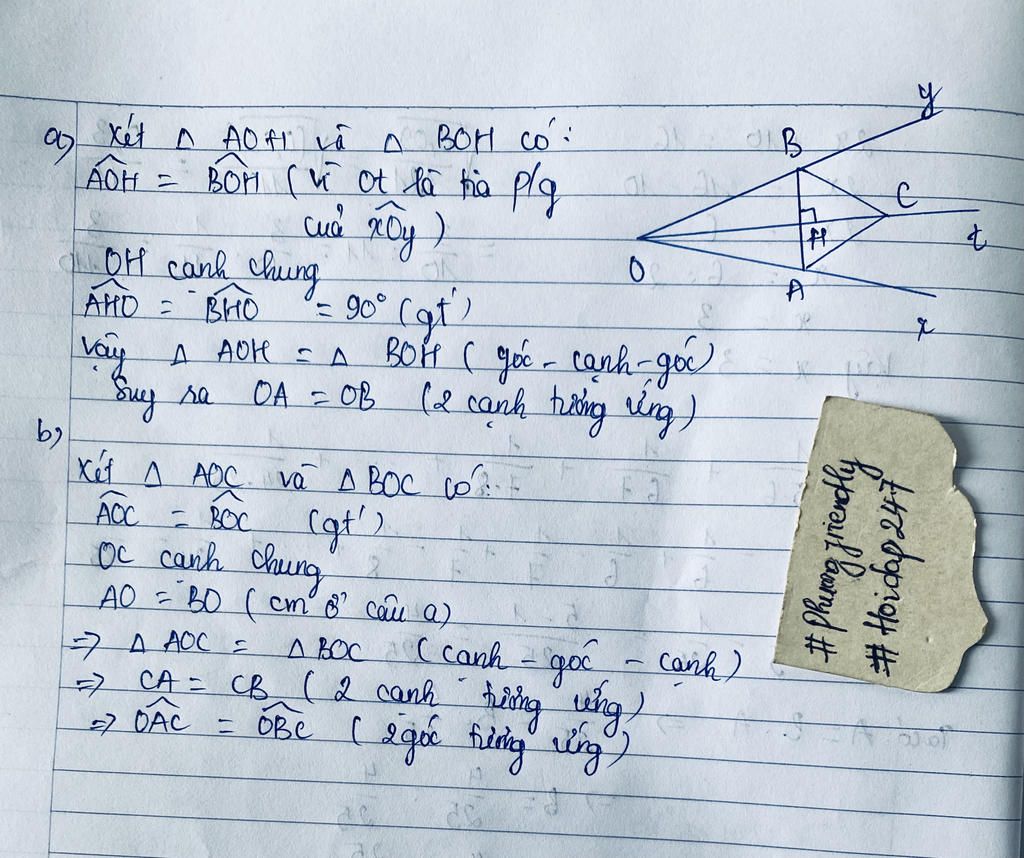 a) Xét Δ AOH và Δ BOH có:
AOH = BOH (vì Ot là tia p/g
của xOy)
OH cạnh chung
AHO = BHO = 90° (gt)
vậy Δ AOH = Δ BOH (góc - cạnh - góc)
Suy ra OA = OB (2 cạnh tương ứng)
b)
Xét Δ AOC và Δ BOC có:
AOC = BOC (gt)
OC cạnh chung
AO = BO (cm ở câu a)
=> Δ AOC = Δ BOC (cạnh - góc - cạnh)
=> CA = CB (2 cạnh tương ứng)
=> OAC = OBC (2 góc tương ứng)
y
B
C
H
t
O
A
x
#Phuong friendly
#Hoidap247